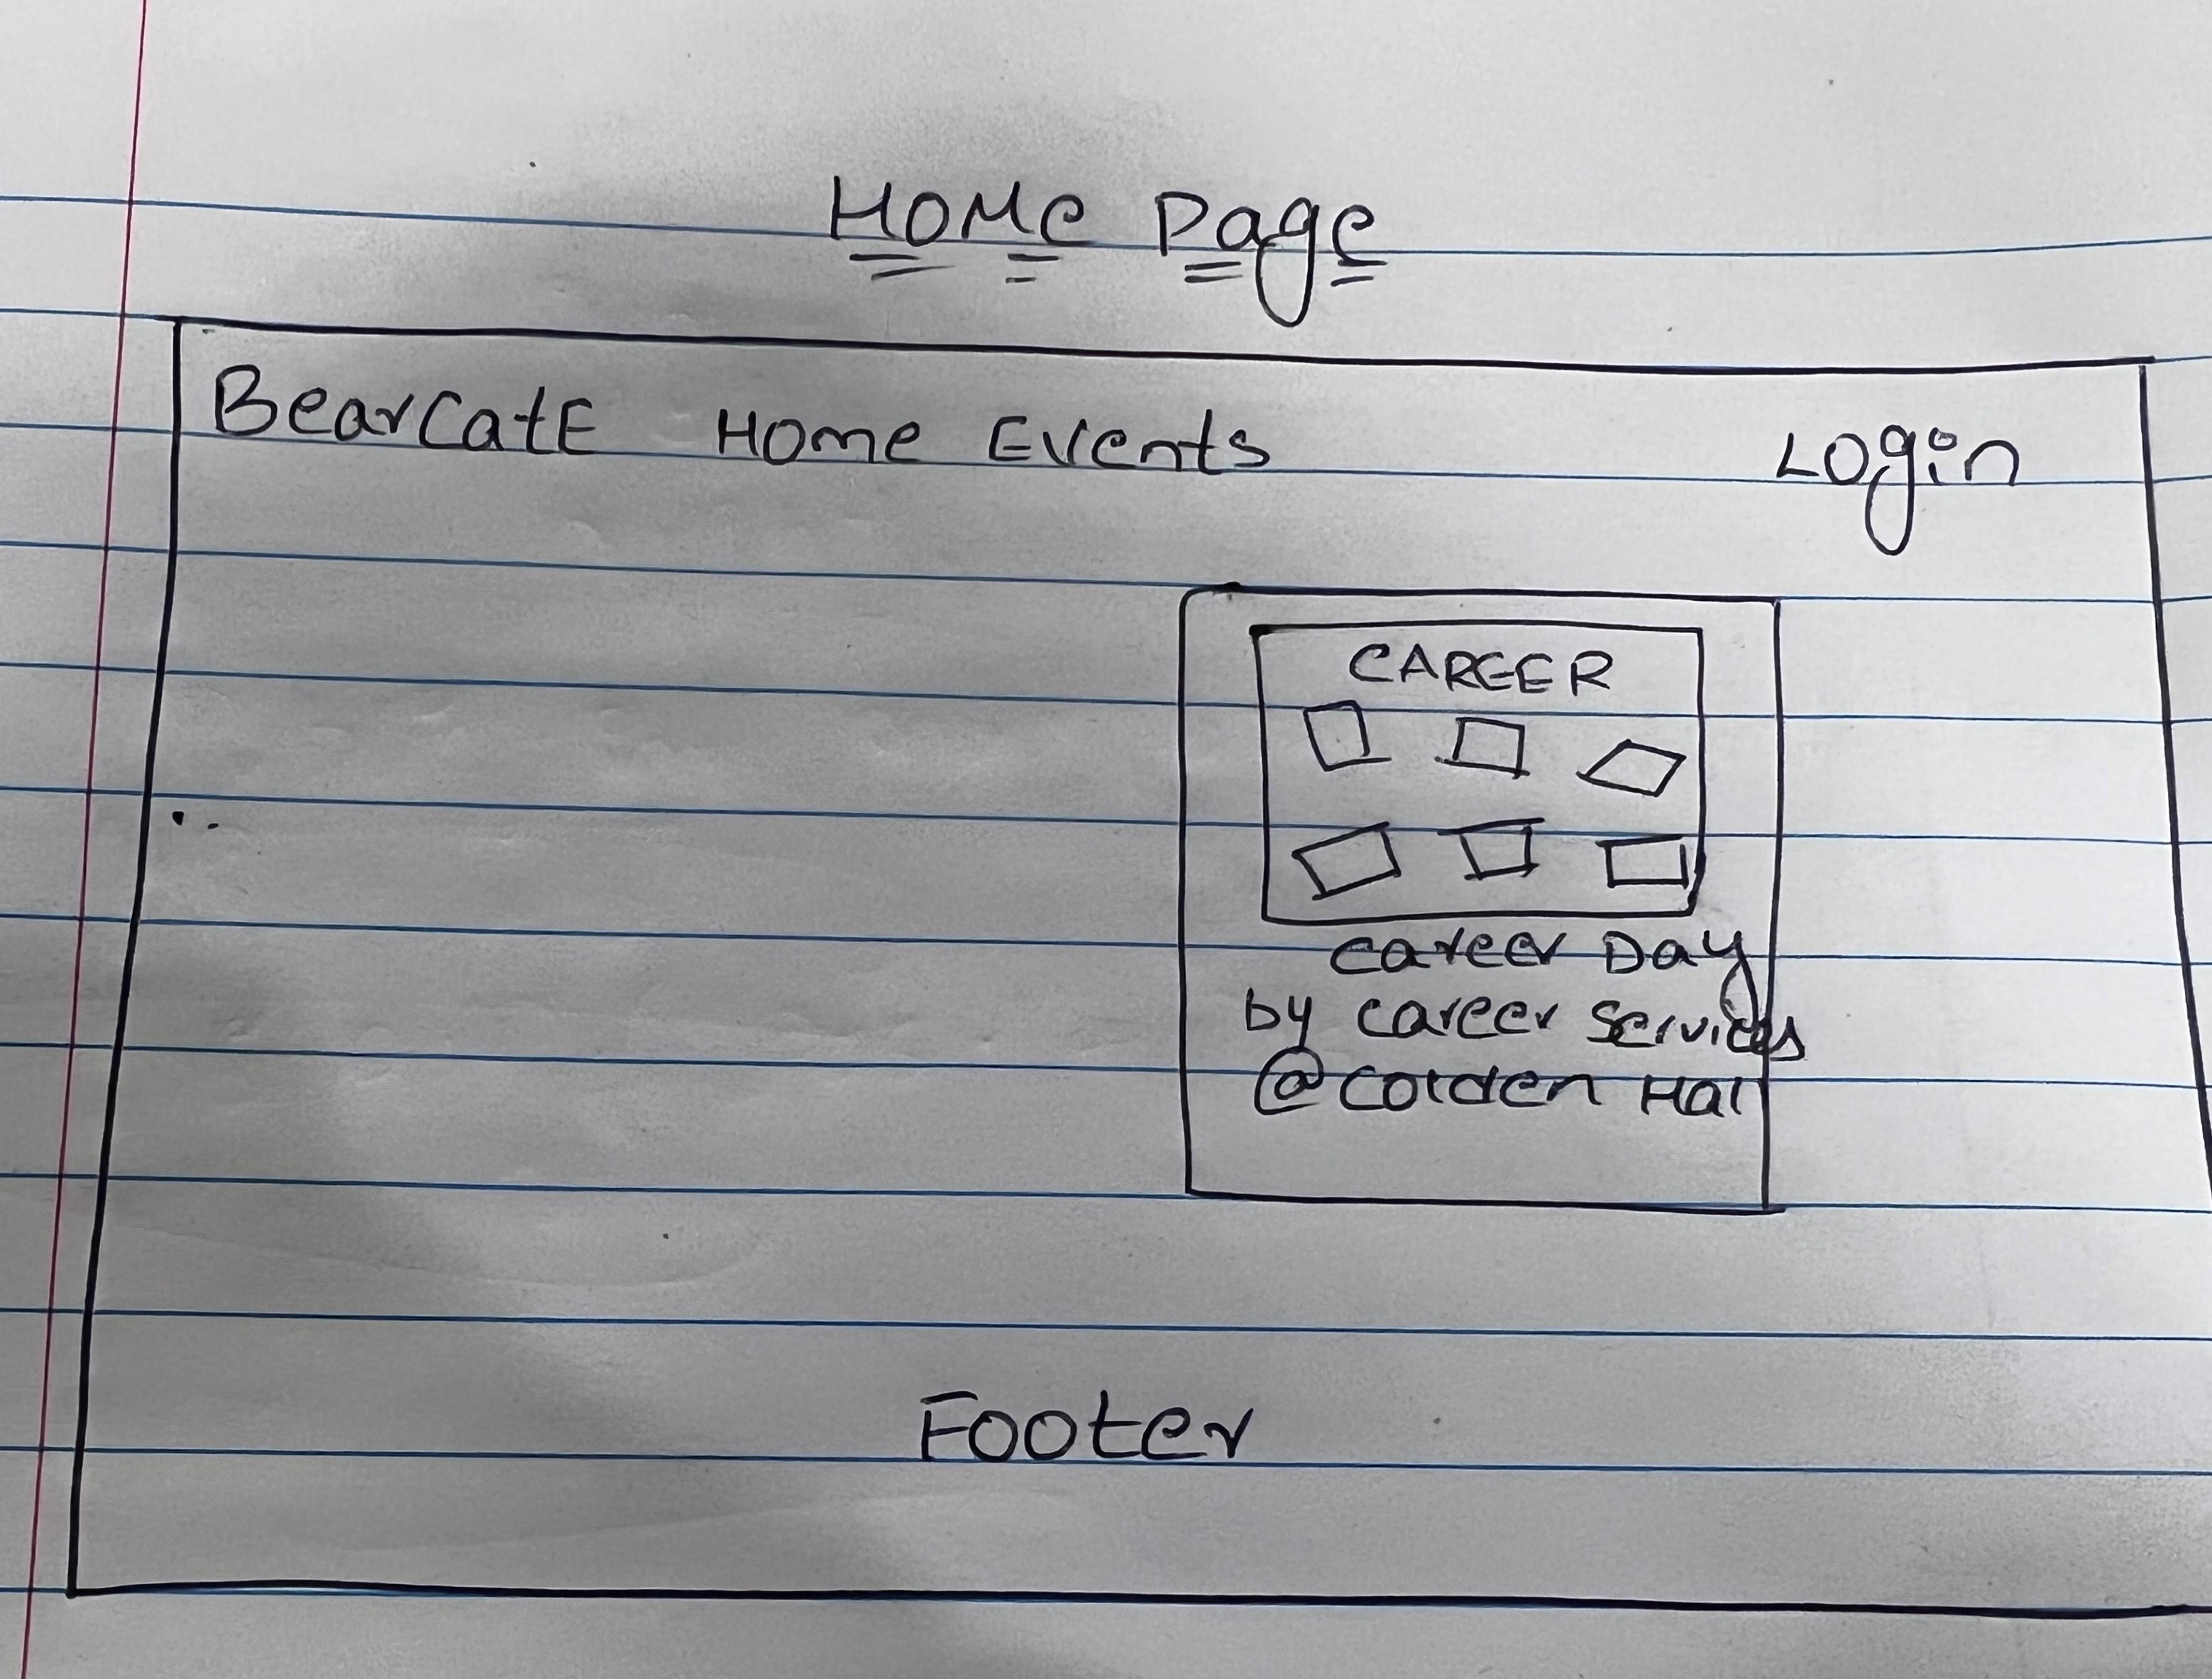 Home Page
BearCatE Home Events Login
CAREER
career Day
by career services
@ Colden Hall
Footer